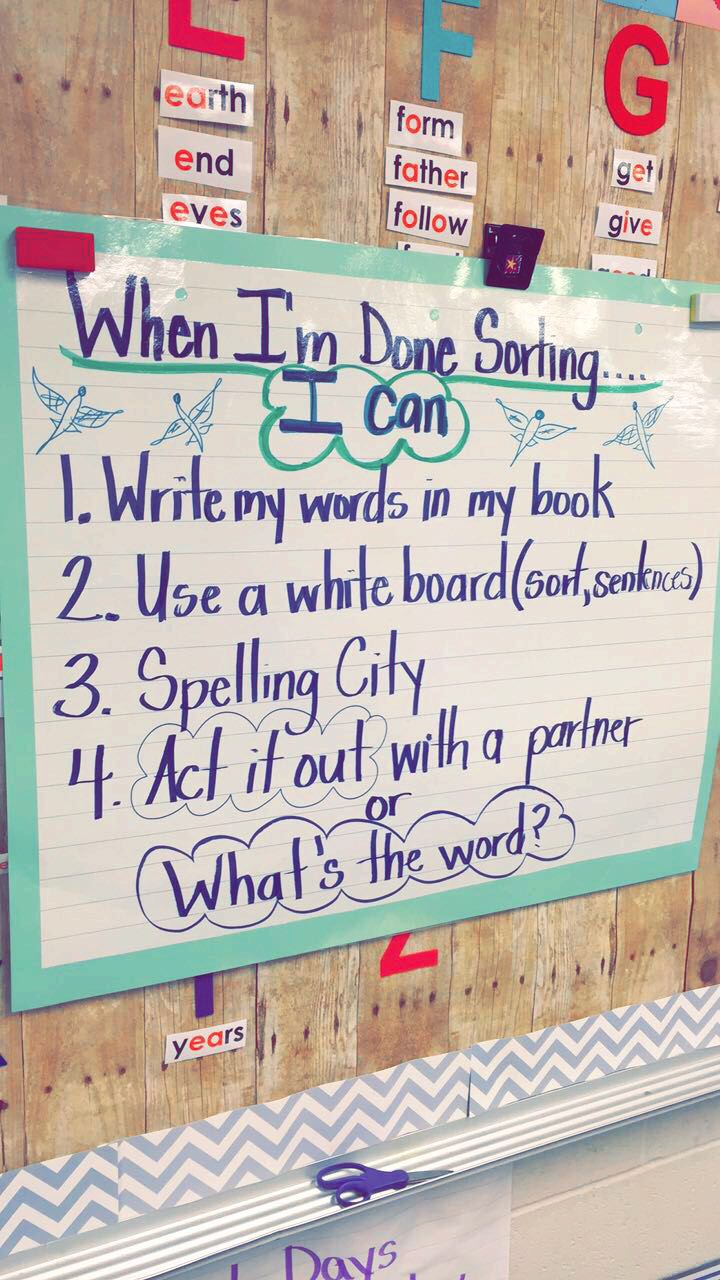 E
F
G
earth
end
eves
form
father
follow
get
give
When I'm Done Sorting....
I can
1. Write my words in my book
2. Use a white board (sort, sentences)
3. Spelling City
4. Act it out with a partner
or
What's the word?
years
Days